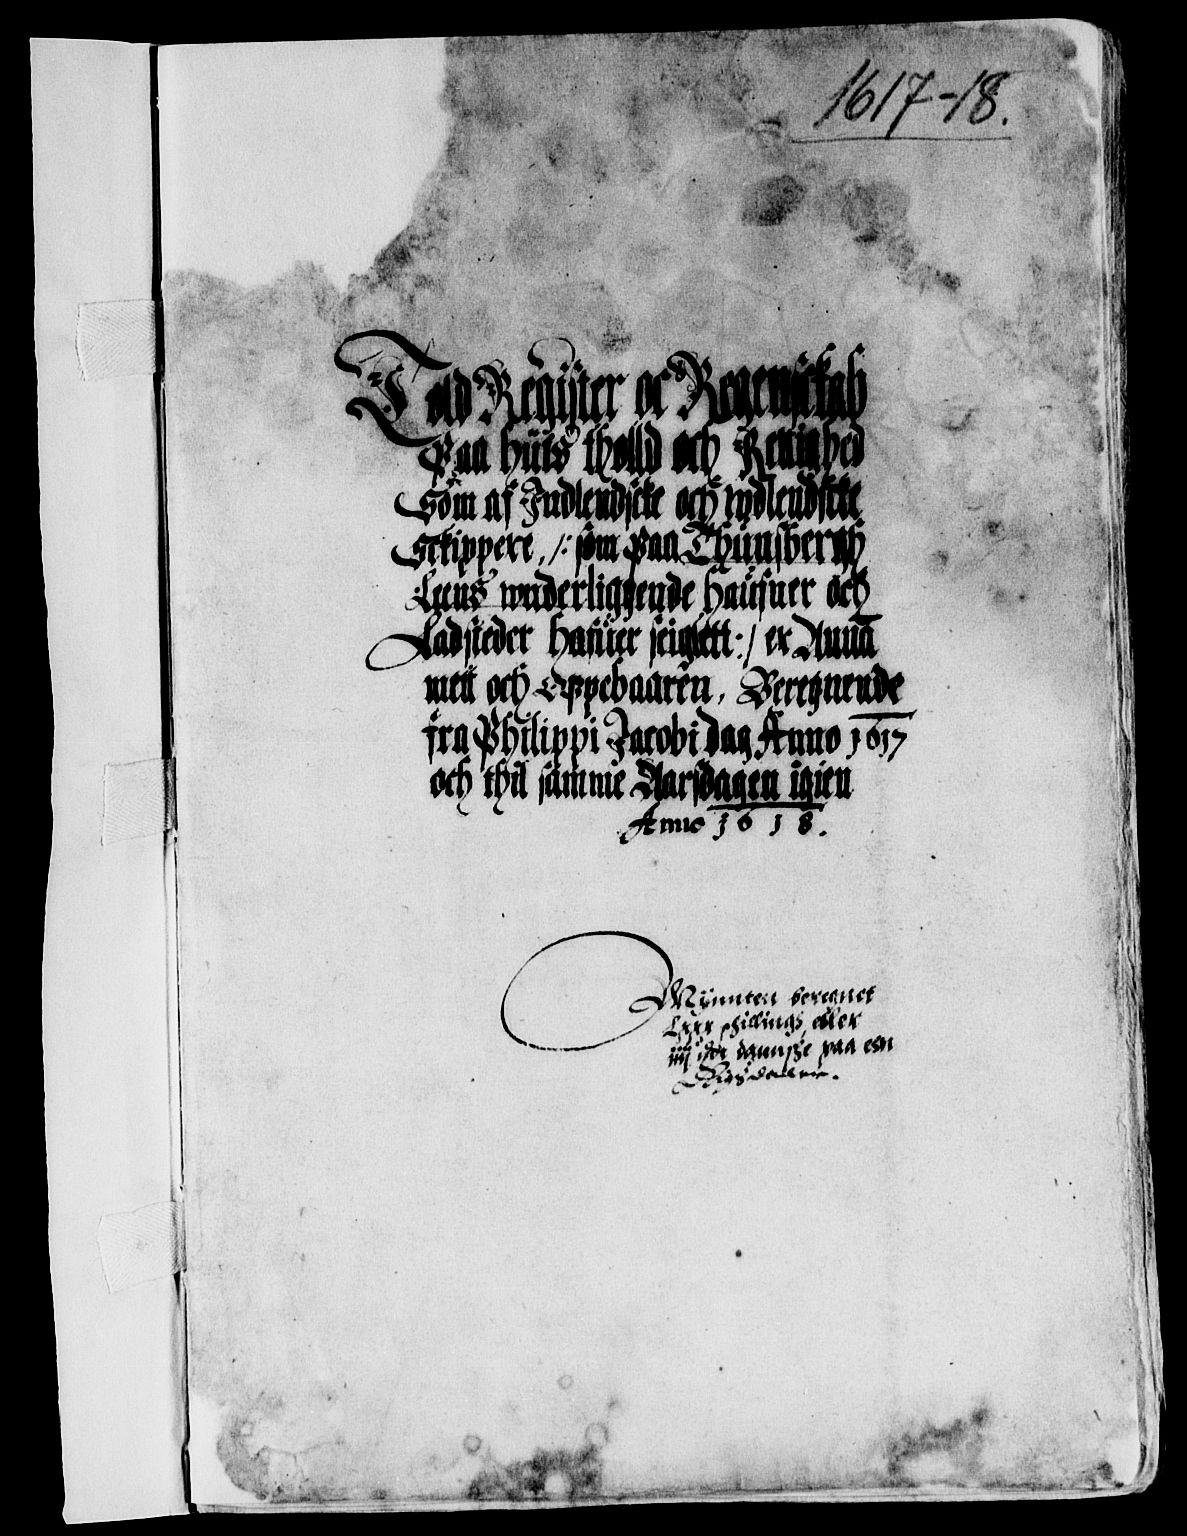 1617-18.
Told Register oc Regenschab
Paa huis tholld och Retighed
Som af Indlendscke och wdlendscke
Sckippere, /: som paa Thunsbergh
Leens wnderliggende haufner och
Ladsteder hafuer seiglett :/ er Anna
mett och Oppebaaren, Beregnende
fra Philippi Jacobi dag Anno 1617
och thil samme Aarsdagen igien
Anno 1618.
Mÿnnten beregnet
Lxxx skillings, eller
iiij danske paa een
Rigsdaller.